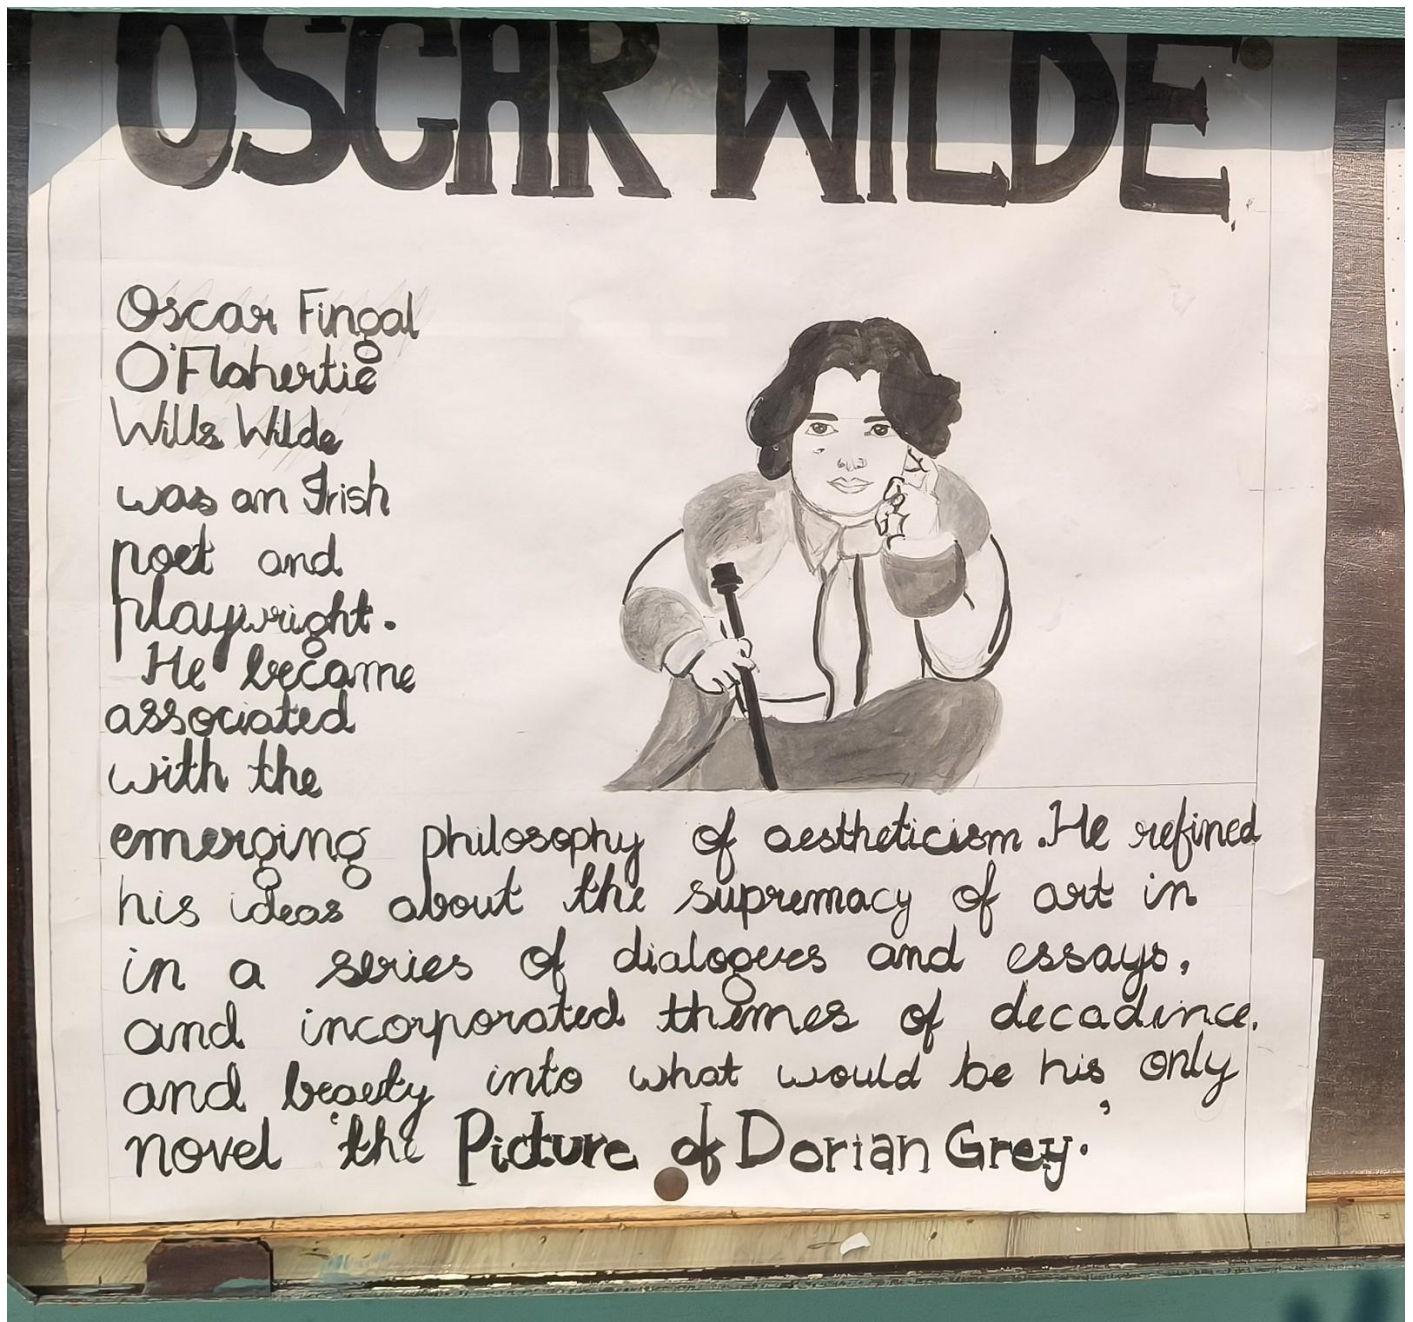 OSCAR WILDE
Oscar Fingal
O'Flahertie
Wills Wilde
was an Irish
poet and
playwright.
He became
associated
with the
emerging philosophy of aestheticism. He refined
his ideas about the supremacy of art in
in a series of dialogues and essays,
and incorporated themes of decadence,
and beauty into what would be his only
novel 'the Picture of Dorian Grey.'